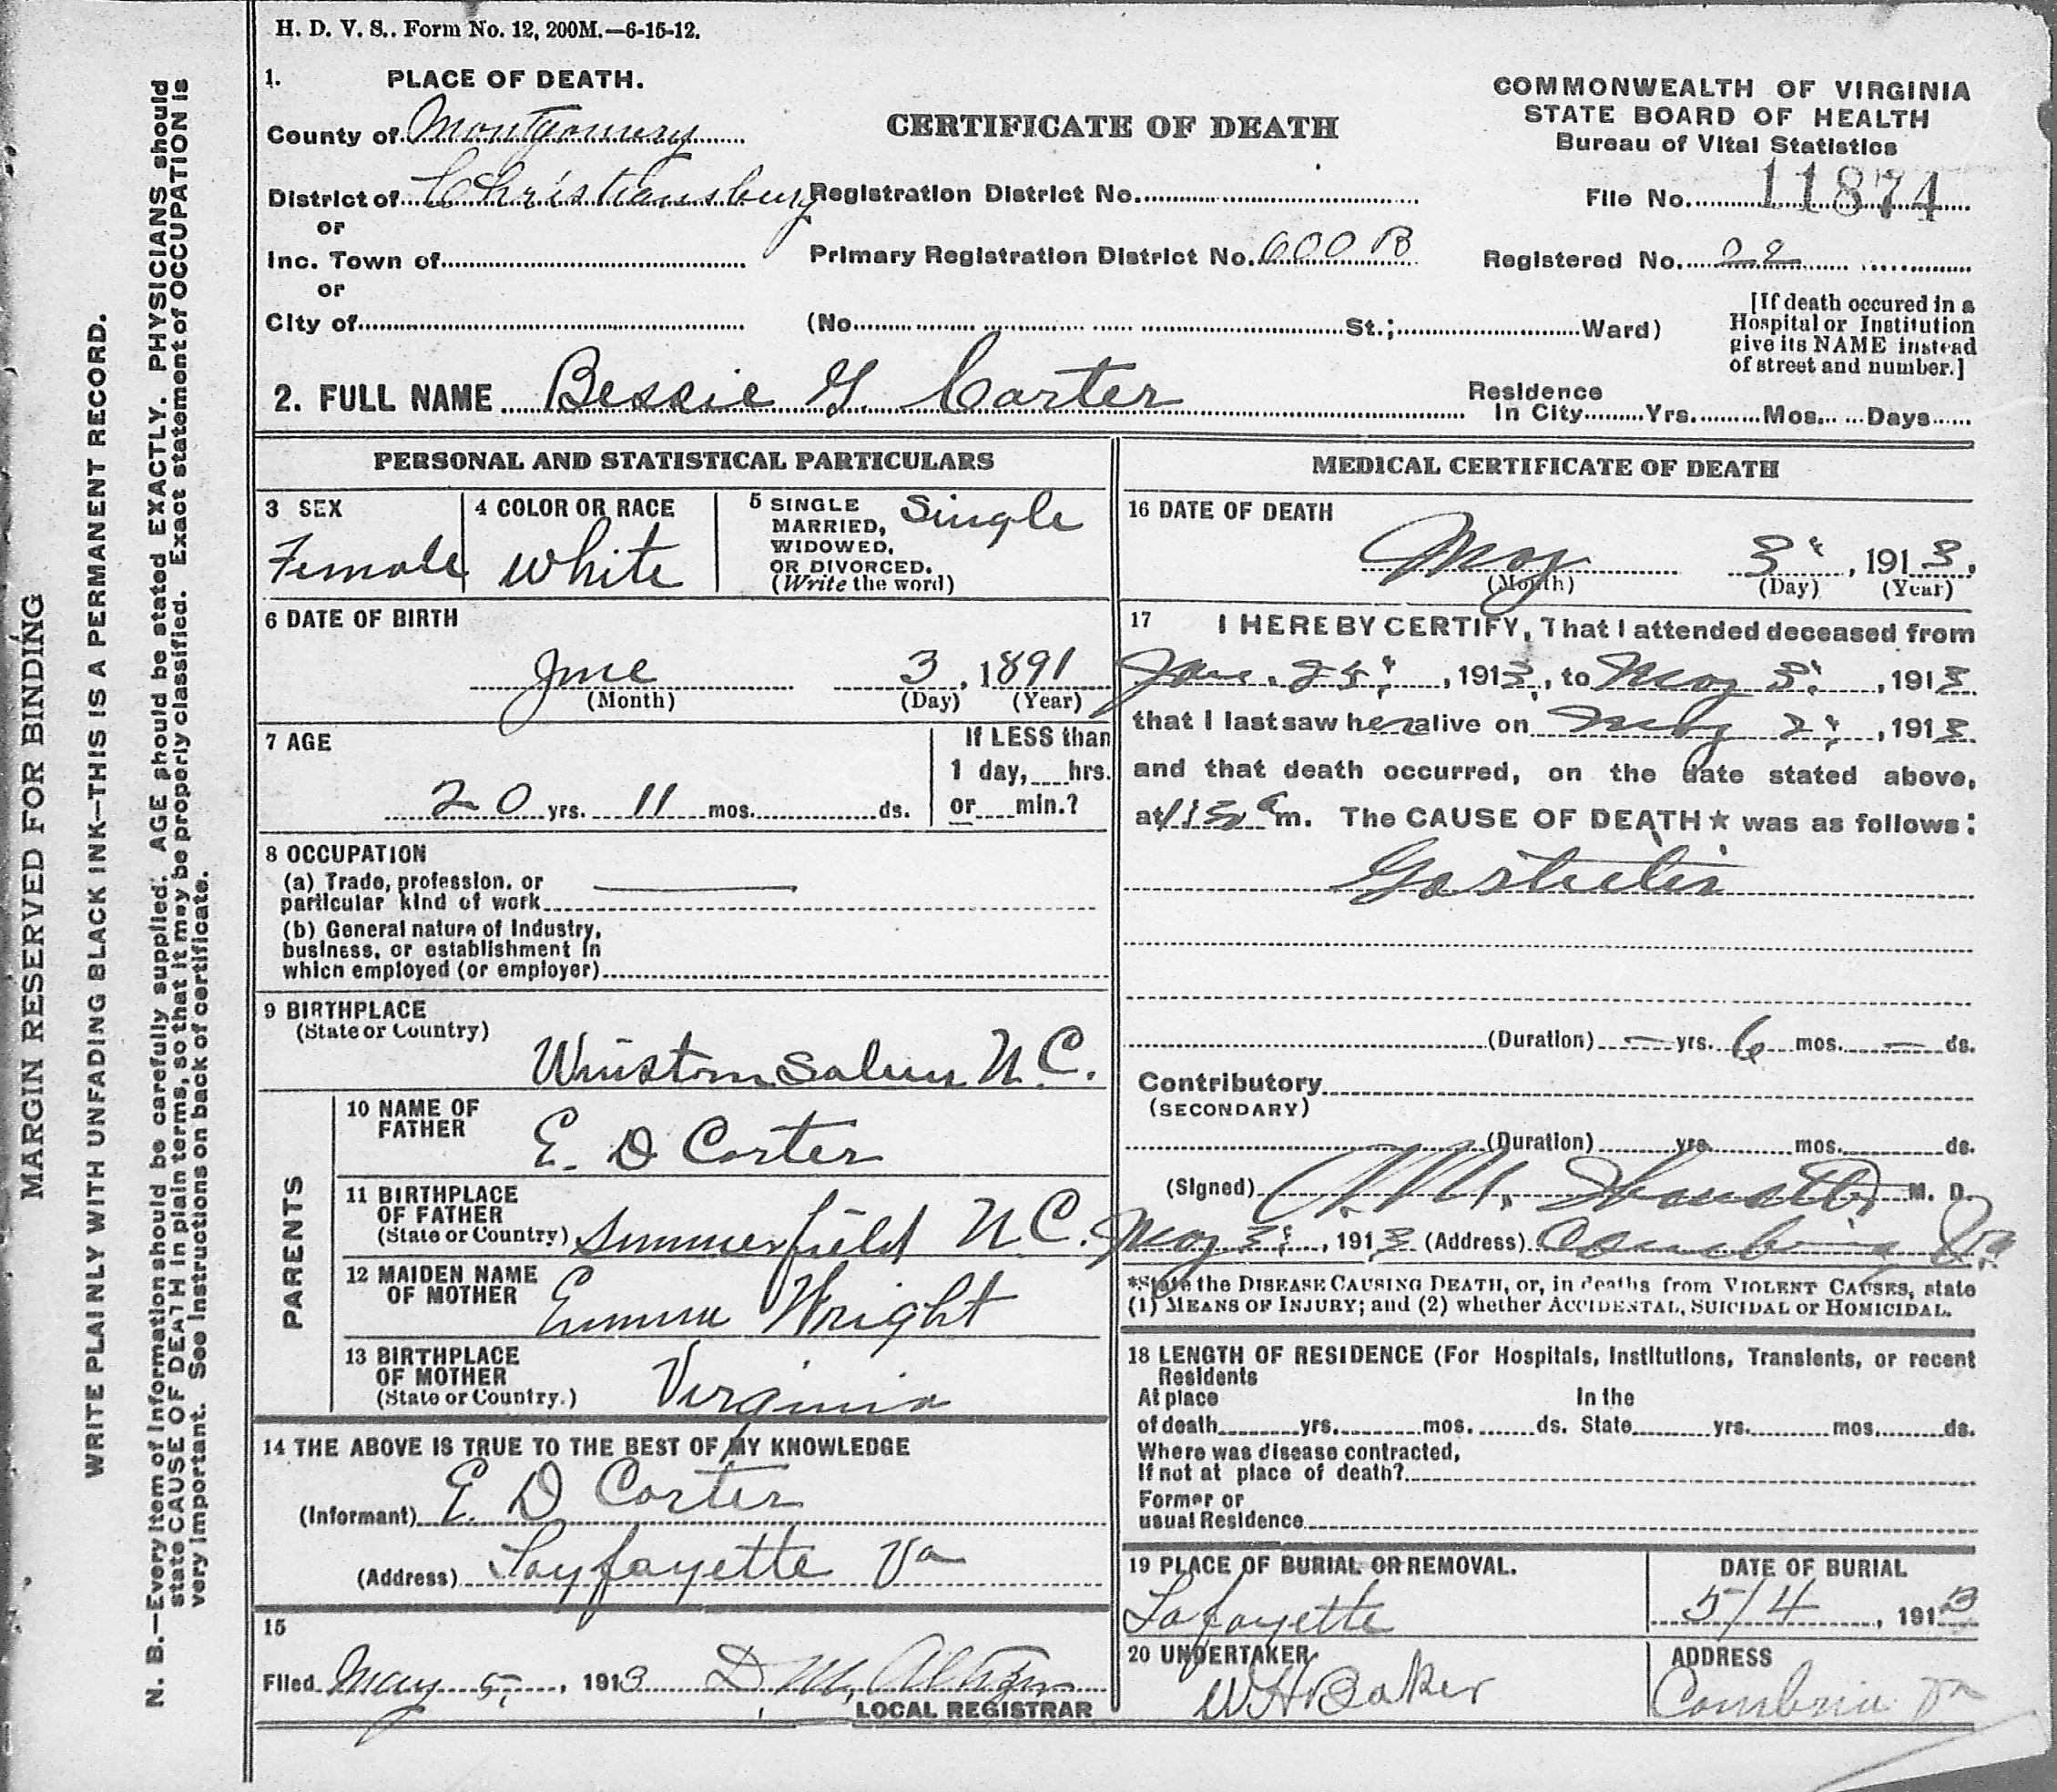 H. D. V. S.. Form No. 12, 200M.—6-15-12.
1. PLACE OF DEATH.
County of Montgomery
District of Christiansburg
or
Inc. Town of
or
City of
CERTIFICATE OF DEATH
Registration District No.
Primary Registration District No. 600 B
(No. St.; Ward)
COMMONWEALTH OF VIRGINIA
STATE BOARD OF HEALTH
Bureau of Vital Statistics
File No. 11874
Registered No. 22
[If death occured in a
Hospital or Institution
give its NAME instead
of street and number.]
2. FULL NAME Bessie G. Carter
Residence
In City Yrs. Mos. Days
PERSONAL AND STATISTICAL PARTICULARS
3 SEX
Female
4 COLOR OR RACE
White
5 SINGLE
MARRIED,
WIDOWED,
OR DIVORCED.
(Write the word)
Single
6 DATE OF BIRTH
June 3, 1891
(Month) (Day) (Year)
7 AGE
20 yrs. 11 mos. ds.
If LESS than
1 day, hrs.
or min.?
8 OCCUPATION
(a) Trade, profession, or
particular kind of work
(b) General nature of Industry,
business, or establishment in
which employed (or employer)
9 BIRTHPLACE
(State or Country)
Winston Salem N. C.
PARENTS
10 NAME OF
FATHER
E. D Carter
11 BIRTHPLACE
OF FATHER
(State or Country) Summerfield N C.
12 MAIDEN NAME
OF MOTHER
Emma Wright
13 BIRTHPLACE
OF MOTHER
(State or Country.)
Virginia
14 THE ABOVE IS TRUE TO THE BEST OF MY KNOWLEDGE
(Informant) E. D Carter
(Address) Layfayette Va
15
Filed May 5, 1913 D. M.
LOCAL REGISTRAR
MEDICAL CERTIFICATE OF DEATH
16 DATE OF DEATH
May 3, 1913.
(Month) (Day) (Year)
17 I HEREBY CERTIFY, That I attended deceased from
Jan. 25, 1913, to May 3, 1913
that I last saw her alive on May 2, 1913
and that death occurred, on the date stated above,
at a m. The CAUSE OF DEATH★ was as follows:
Gastritis
(Duration) — yrs. 6 mos. — ds.
Contributory
(SECONDARY)
(Duration) yrs. mos. ds.
(Signed) M. D.
May 3, 1913 (Address) Va.
*State the DISEASE CAUSING DEATH, or, in deaths from VIOLENT CAUSES, state
(1) MEANS OF INJURY; and (2) whether ACCIDENTAL, SUICIDAL or HOMICIDAL.
18 LENGTH OF RESIDENCE (For Hospitals, Institutions, Transients, or recent
Residents
At place In the
of death yrs. mos. ds. State yrs. mos. ds.
Where was disease contracted,
If not at place of death?
Former or
usual Residence
19 PLACE OF BURIAL OR REMOVAL.
Lafayette
DATE OF BURIAL
5/4, 1913
20 UNDERTAKER
W H Baker
ADDRESS
Cambria Va
MARGIN RESERVED FOR BINDING
WRITE PLAINLY WITH UNFADING BLACK INK—THIS IS A PERMANENT RECORD.
N. B.—Every item of Information should be carefully supplied. AGE should be stated EXACTLY. PHYSICIANS should
state CAUSE OF DEATH in plain terms, so that it may be properly classified. Exact statement of OCCUPATION is
very important. See Instructions on back of certificate.